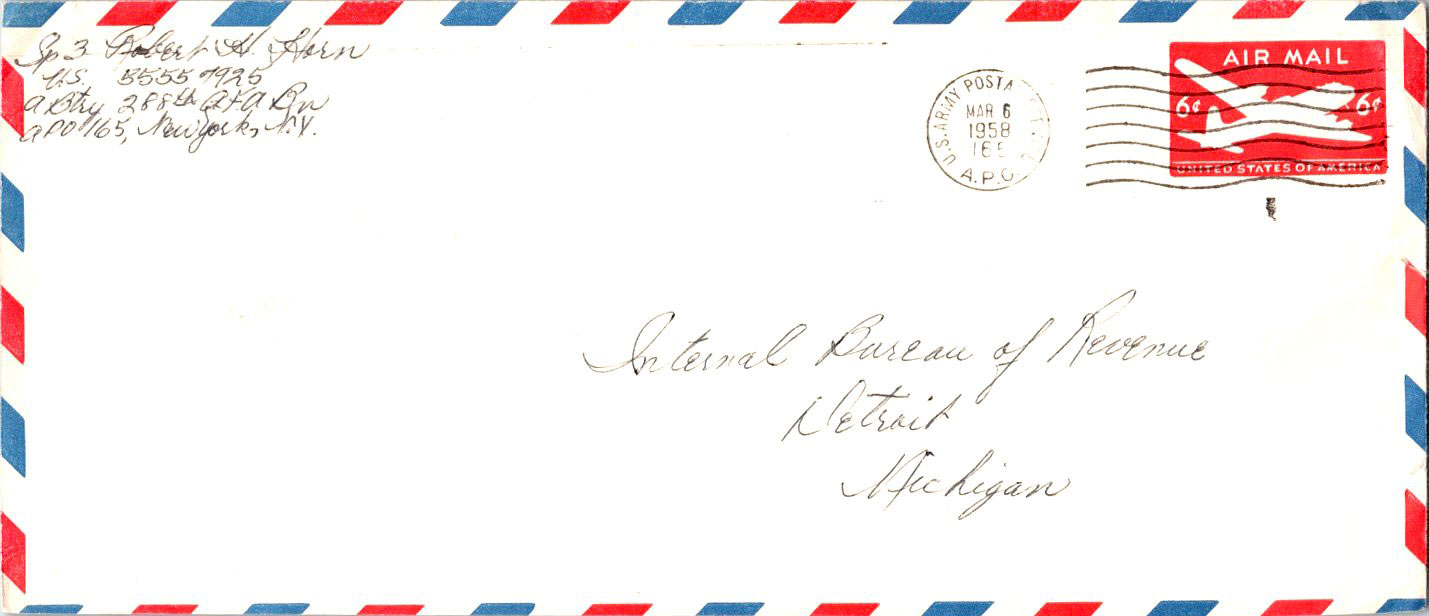 Sp 3 Robert H. Horn
U.S. 55557925
A Btry 288th AFA Bn
APO 165, New York, N.Y.
U.S. ARMY POSTA
MAR 6
1958
165
A.P.O.
AIR MAIL
6¢ 6¢
UNITED STATES OF AMERICA
Internal Bureau of Revenue
Detroit
Michigan